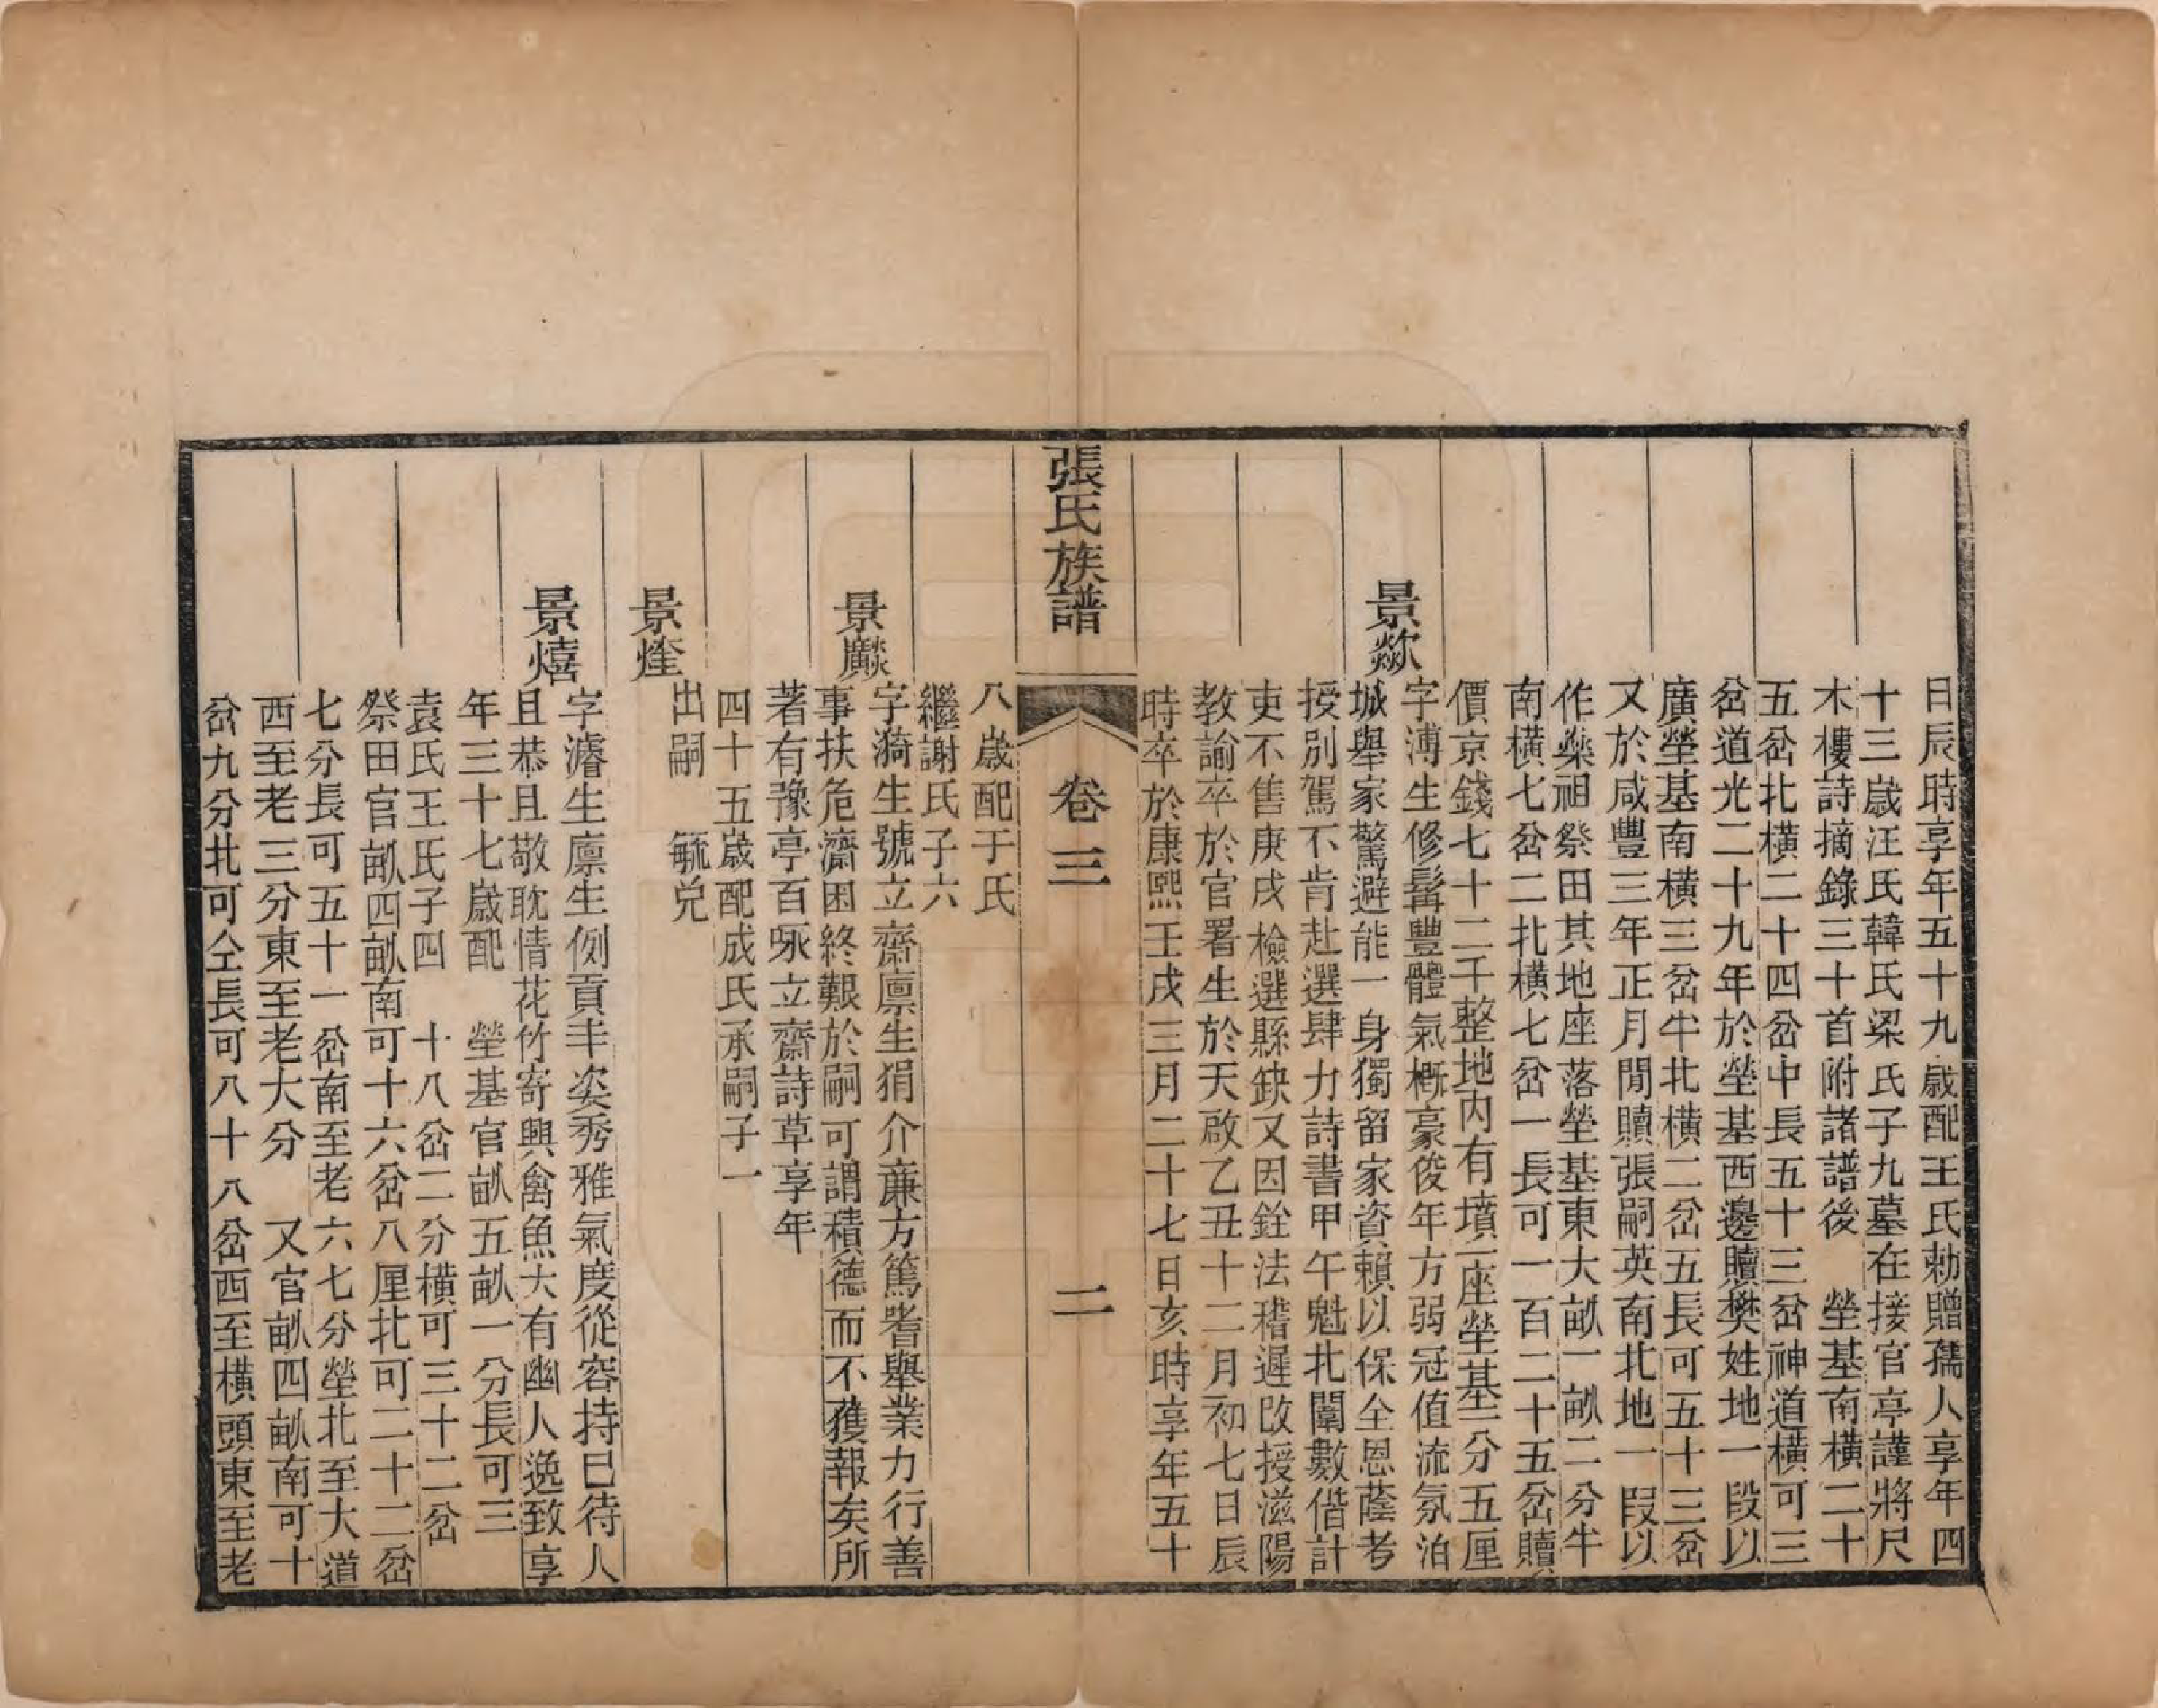 日辰時享年五十九歲配王氏勅贈孺人享年四
十三歲汪氏韓氏梁氏子九墓在接官亭謹將尺
木樓詩摘錄三十首附諸譜後　塋基南橫二十
五岔北橫二十四岔中長五十三岔神道橫可三
岔道光二十九年於塋基西邊贖樊姓地一段以
廣塋基南橫三岔半北橫二岔五長可五十三岔
又於咸豐三年正月閒贖張嗣英南北地一段以
作藥祖祭田其地座落塋基東大畝一畝二分半
南橫七岔二北橫七岔一長可一百二十五岔贖
價京錢七十二千整地內有墳一座塋基一分五厘
景歘
字溥生修髯豐體氣概豪俊年方弱冠值流氛泊
城舉家驚避能一身獨留家資賴以保全恩蔭考
授別駕不肯赴選肆力詩書甲午魁北闈數偕計
吏不售庚戌檢選縣缺又因銓法稽遲改授滋陽
教諭卒於官署生於天啟乙丑十二月初七日辰
時卒於康熙壬戌三月二十七日亥時享年五十
張氏族譜　卷三　二
八歲配于氏
繼謝氏子六
景
字漪生號立齋廩生狷介廉方篤耆舉業力行善
事扶危濟困終艱於嗣可謂積德而不獲報矣所
著有豫亭百咏立齋詩草享年
四十五歲配成氏承嗣子一
出嗣　毓兌
景煃
景熺
字濬生廩生例貢丰姿秀雅氣度從容持已待人
且恭且敬耽情花竹寄興禽魚大有幽人逸致享
年三十七歲配　塋基官畝五畝一分長可三
袁氏王氏子四　十八岔二分橫可三十二岔
祭田官畝四畝南可十六岔八厘北可二十二岔
七分長可五十一岔南至老六七分塋北至大道
西至老三分東至老大分　又官畝四畝南可十
岔九分北可仝長可八十八岔西至橫頭東至老